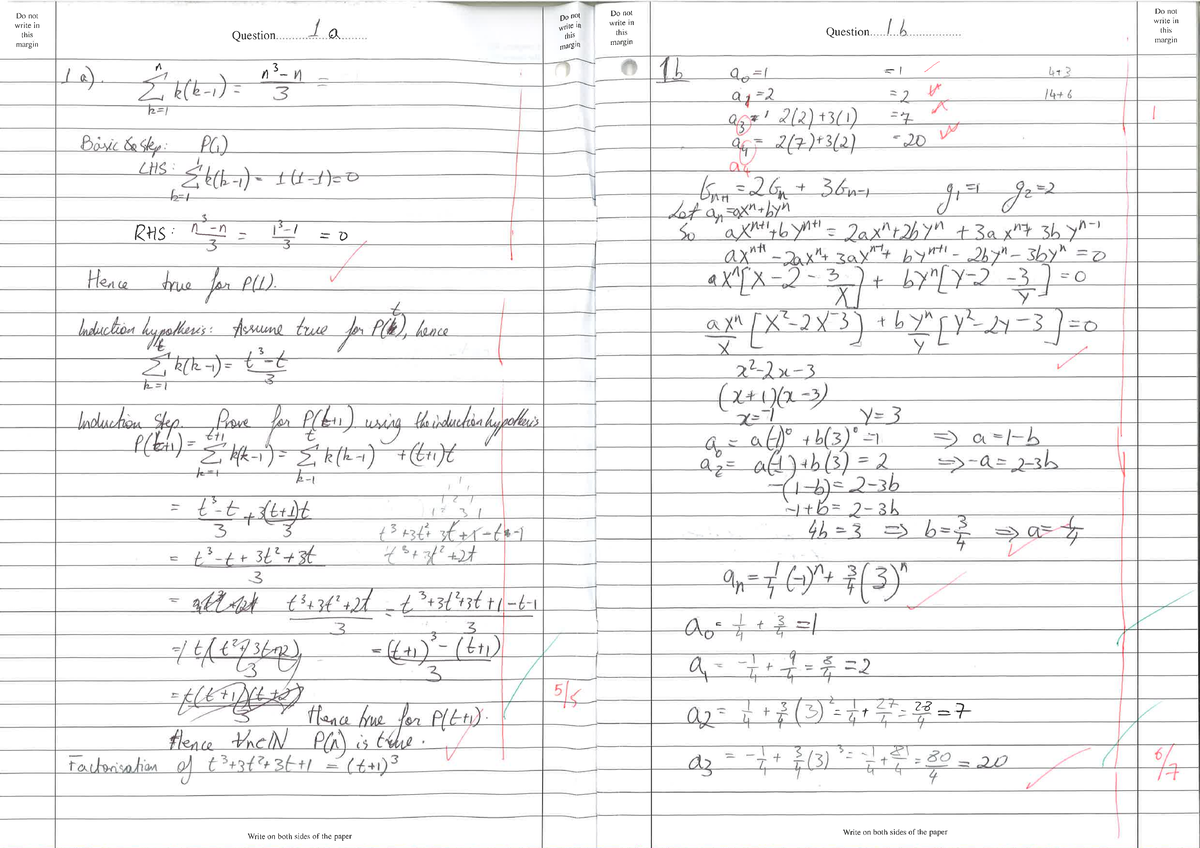 Do not
write in
this
margin
Question 1 a
Do not
write in
this
margin
1 a). n Σ k=1 k(k-1) = n³-n / 3 =
Basic Step: P(1)
LHS: 1 Σ k=1 k(k-1) = 1(1-1) = 0
RHS: n³-n / 3 = 1³-1 / 3 = 0
Hence true for P(1).
Induction hypothesis: Assume true for P(t), hence
t Σ k=1 k(k-1) = t³-t / 3
Induction Step. Prove for P(t+1) using the induction hypothesis
P(t+1) = t+1 Σ k=1 k(k-1) = t Σ k-1 k(k-1) + (t+1)t
= t³-t / 3 + 3(t+1)t / 3
= t³-t+3t²+3t / 3
t³+3t²+2t
= t³+3t²+2t / 3 = t³+3t²+3t+1-t-1 / 3
= (t+1)³-(t+1) / 3
5/5
Hence true for P(t+1).
Hence ∀n∈ℕ P(n) is true.
Factorisation of t³+3t²+3t+1 = (t+1)³
Write on both sides of the paper
Do not
write in
this
margin
Question 1 b
Do not
write in
this
margin
1b a₀ = 1 = 1 4+3
a₁ = 2 = 2 14+6
a₃ = 2(2)+3(1) = 7 1
a₄ = 2(7)+3(2) = 20
a₄
Gₙ₊₁ = 2Gₙ + 3Gₙ₋₁ g₁=1 g₂=2
Let aₙ = axⁿ+byⁿ
So axⁿ⁺¹+byⁿ⁺¹ = 2axⁿ+2byⁿ + 3axⁿ⁻¹+ 3byⁿ⁻¹
axⁿ⁺¹ - 2axⁿ + 3axⁿ⁻¹ + byⁿ⁺¹ - 2byⁿ - 3byⁿ = 0
axⁿ[x - 2 - 3/x] + byⁿ[y - 2 - 3/y] = 0
axⁿ/x [x²-2x-3] + byⁿ/y [y²-2y-3] = 0
x²-2x-3
(x+1)(x-3)
x=-1 y=3
a₀ = a(-1)⁰ + b(3)⁰ = 1 ⇒ a = 1-b
a₂ = a(-1)+b(3) = 2 ⇒ -a = 2-3b
-(1-b) = 2-3b
-1+b = 2-3b
4b = 3 ⇒ b = 3/4 ⇒ a = 1/4
aₙ = 1/4 (-1)ⁿ + 3/4 (3)ⁿ
a₀ = 1/4 + 3/4 = 1
a₁ = -1/4 + 9/4 = 8/4 = 2
a₂ = 1/4 + 3/4 (3)² = 1/4 + 27/4 = 28/4 = 7
a₃ = -1/4 + 3/4 (3)³ = -1/4 + 81/4 = 80/4 = 20
6/7
Write on both sides of the paper